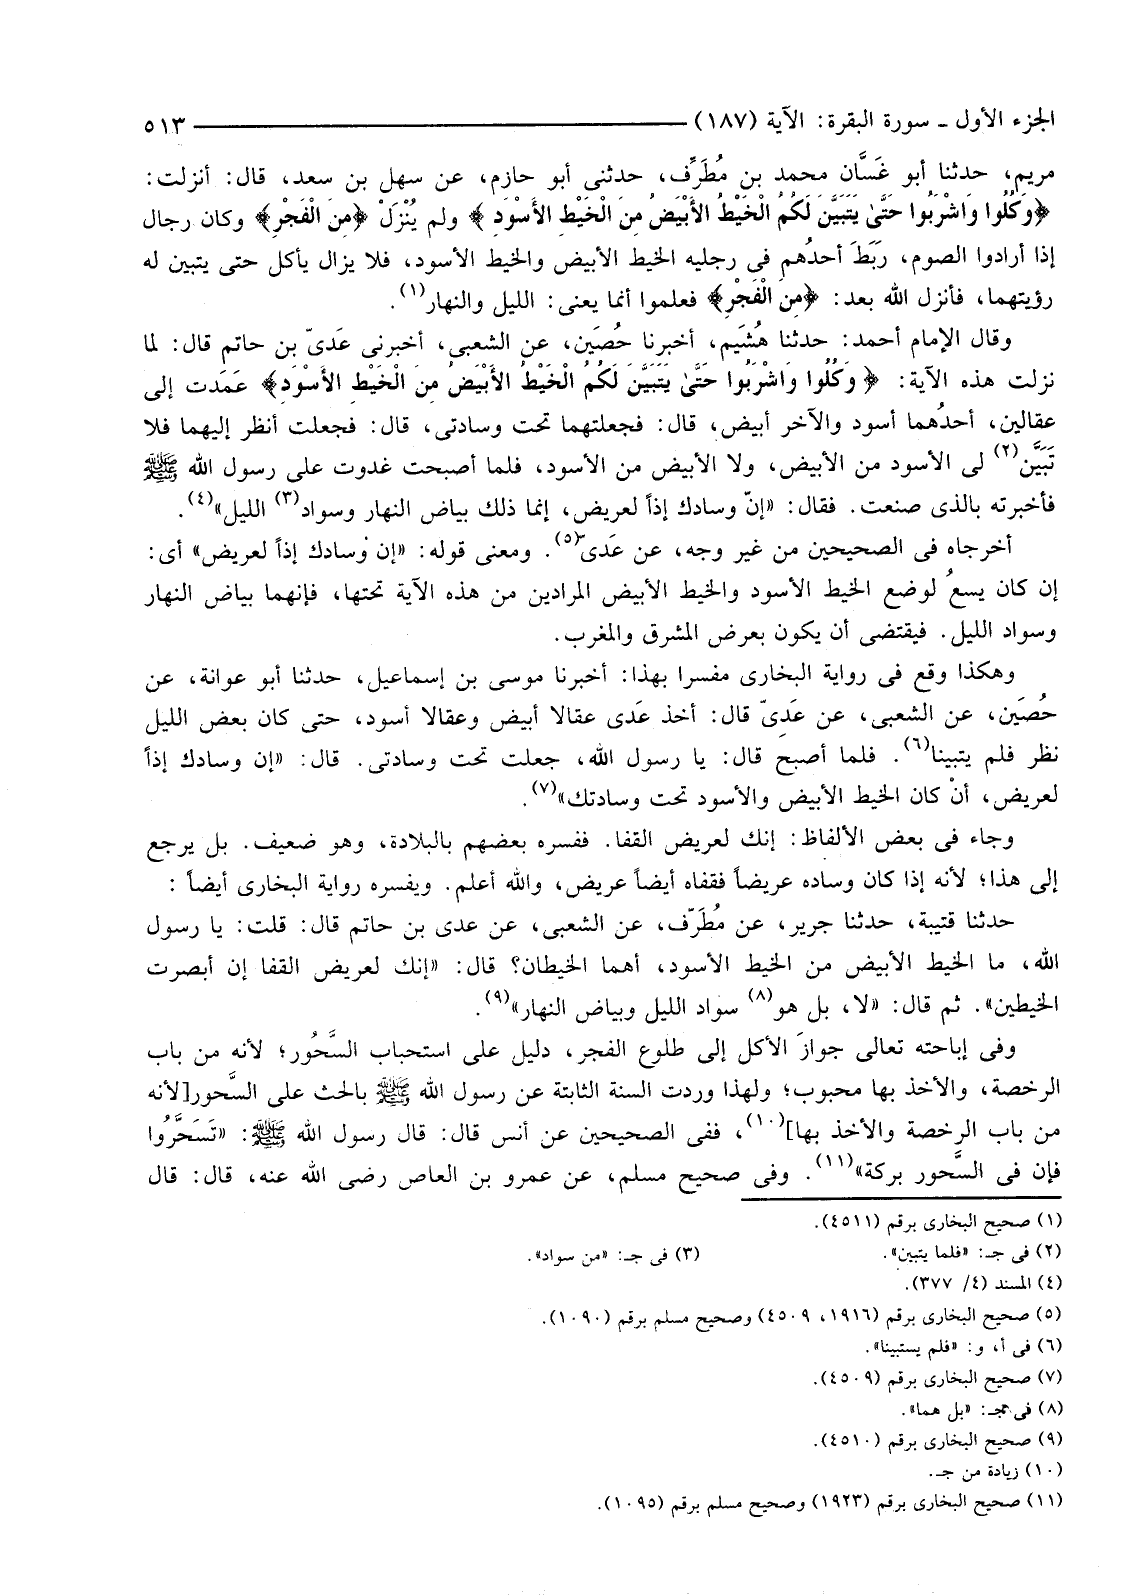 الجزء الأول ـ سورة البقرة: الآية (١٨٧) ٥١٣
مريم، حدثنا أبو غَسَّان محمد بن مُطَرِّف، حدثنى أبو حازم، عن سهل بن سعد، قال: أنزلت:
﴿وَكُلُوا وَاشْرَبُوا حَتَّىٰ يَتَبَيَّنَ لَكُمُ الْخَيْطُ الأَبْيَضُ مِنَ الْخَيْطِ الأَسْوَدِ﴾ ولم يُنْزَلْ ﴿مِنَ الْفَجْرِ﴾ وكان رجال
إذا أرادوا الصوم، رَبَطَ أحدُهم فى رجليه الخيط الأبيض والخيط الأسود، فلا يزال يأكل حتى يتبين له
رؤيتهما، فأنزل الله بعد: ﴿مِنَ الْفَجْرِ﴾ فعلموا أنما يعنى: الليل والنهار(١).
وقال الإمام أحمد: حدثنا هُشَيم، أخبرنا حُصَين، عن الشعبى، أخبرنى عَدىّ بن حاتم قال: لما
نزلت هذه الآية: ﴿وَكُلُوا وَاشْرَبُوا حَتَّىٰ يَتَبَيَّنَ لَكُمُ الْخَيْطُ الأَبْيَضُ مِنَ الْخَيْطِ الأَسْوَدِ﴾ عَمَدت إلى
عقالين، أحدُهما أسود والآخر أبيض، قال: فجعلتهما تحت وسادتى، قال: فجعلت أنظر إليهما فلا
تَبَيَّن(٢) لى الأسود من الأبيض، ولا الأبيض من الأسود، فلما أصبحت غدوت على رسول الله ﷺ
فأخبرته بالذى صنعت. فقال: «إنّ وسادك إذاً لعريض، إنما ذلك بياض النهار وسواد(٣) الليل»(٤).
أخرجاه فى الصحيحين من غير وجه، عن عَدىّ(٥). ومعنى قوله: «إن وْسادك إذاً لعريض» أى:
إن كان يسعُ لوضع الخيط الأسود والخيط الأبيض المرادين من هذه الآية تحتها، فإنهما بياض النهار
وسواد الليل. فيقتضى أن يكون بعرض المشرق والمغرب.
وهكذا وقع فى رواية البخارى مفسرا بهذا: أخبرنا موسى بن إسماعيل، حدثنا أبو عوانة، عن
حُصَين، عن الشعبى، عن عَدِىّ قال: أخذ عَدى عقالا أبيض وعقالا أسود، حتى كان بعض الليل
نظر فلم يتبينا(٦). فلما أصبح قال: يا رسول الله، جعلت تحت وسادتى. قال: «إن وسادك إذاً
لعريض، أنْ كان الخيط الأبيض والأسود تحت وسادتك»(٧).
وجاء فى بعض الألفاظ: إنك لعريض القفا. ففسره بعضهم بالبلادة، وهو ضعيف. بل يرجع
إلى هذا؛ لأنه إذا كان وساده عريضاً فقفاه أيضاً عريض، والله أعلم. ويفسره رواية البخارى أيضاً :
حدثنا قتيبة، حدثنا جرير، عن مُطَرّف، عن الشعبى، عن عدى بن حاتم قال: قلت: يا رسول
الله، ما الخيط الأبيض من الخيط الأسود، أهما الخيطان؟ قال: «إنك لعريض القفا إن أبصرت
الخيطين». ثم قال: «لا، بل هو(٨) سواد الليل وبياض النهار»(٩).
وفى إباحته تعالى جوازَ الأكل إلى طلوع الفجر، دليل على استحباب السَّحُور؛ لأنه من باب
الرخصة، والأخذ بها محبوب؛ ولهذا وردت السنة الثابتة عن رسول الله ﷺ بالحث على السَّحور[لأنه
من باب الرخصة والأخذ بها](١٠)، ففى الصحيحين عن أنس قال: قال رسول الله ﷺ: «تَسَحَّرُوا
فإن فى السَّحور بركة»(١١). وفى صحيح مسلم، عن عمرو بن العاص رضى الله عنه، قال: قال
(١) صحيح البخارى برقم (٤٥١١).
(٢) فى جـ: «فلما يتبين». (٣) فى جـ: «من سواد».
(٤) المسند (٤/ ٣٧٧).
(٥) صحيح البخارى برقم (١٩١٦، ٤٥٠٩) وصحيح مسلم برقم (١٠٩٠).
(٦) فى أ، و: «فلم يستبينا».
(٧) صحيح البخارى برقم (٤٥٠٩).
(٨) فى جـ: «بل هما».
(٩) صحيح البخارى برقم (٤٥١٠).
(١٠) زيادة من جـ.
(١١) صحيح البخارى برقم (١٩٢٣) وصحيح مسلم برقم (١٠٩٥).